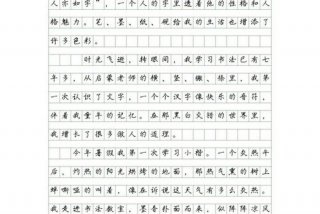 人亦如字"，一个人的字里透着他的性格和人
格魅力。笔、墨、纸、砚给我的生活也增添了
许多色彩。
时光飞逝，转眼间，我学习书法已有三
年多，从启蒙老师的横、竖、撇、捺里，我第
一次认识了文字，一个个汉字像快乐的音符，
伴着我童年的记忆。在那黑白交错的世界里，
我增长了很多做人的道理。
今年暑假我第一次学习小楷。一个炎热午
后，灼热的阳光烘烤的地面，那热气熏的树上
蝉唧唧的叫着，像在诉说这天气有多么炎热。
我走进书法教室，墨香扑面而来，似阵阵凉风